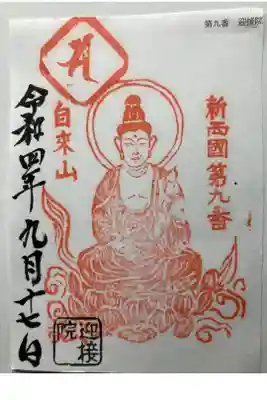 第九番 迎接院
新西國第九番
白來山
令和四年九月十七日
迎接院